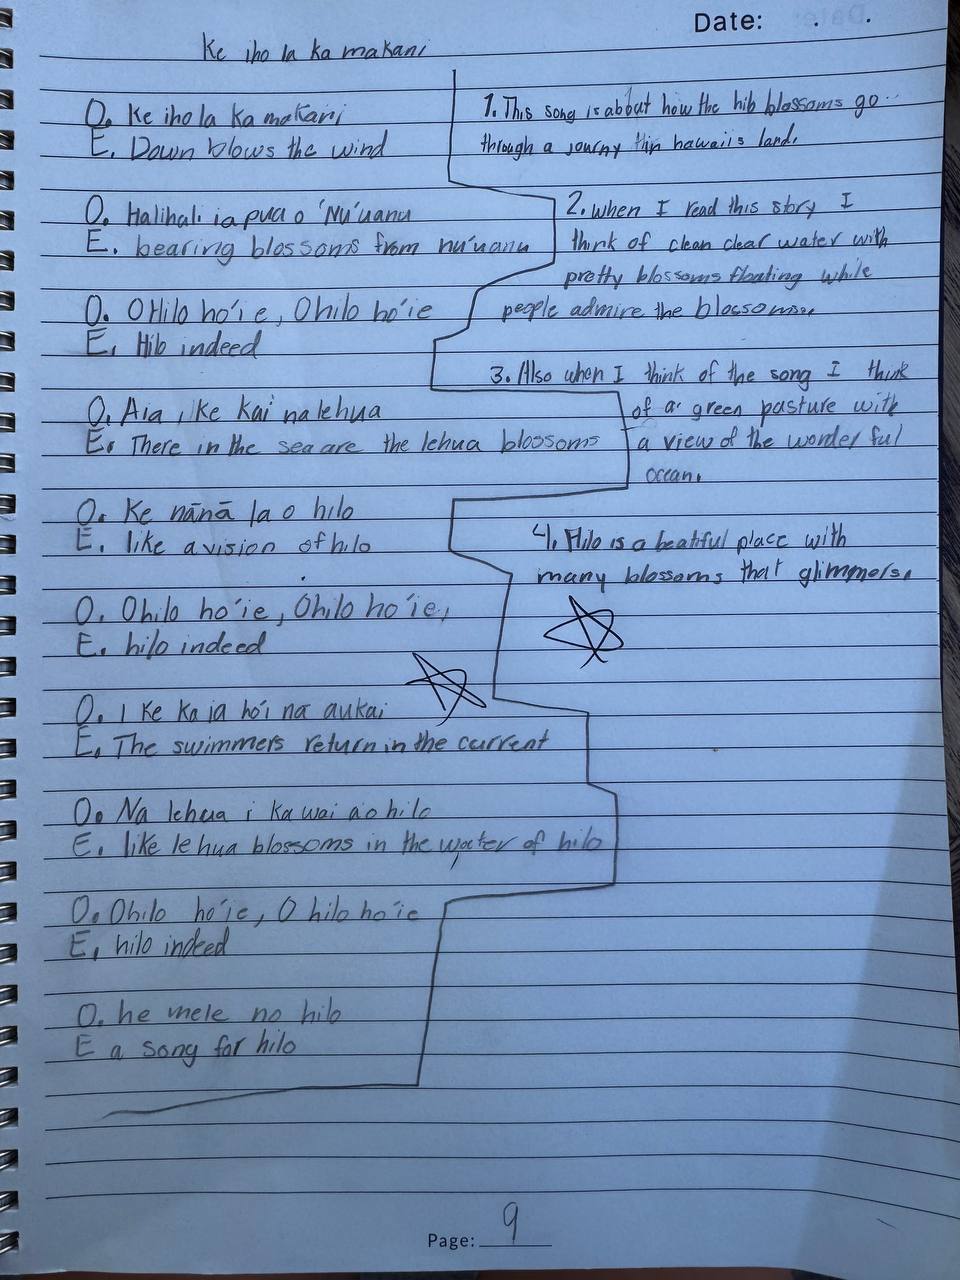 Date: . .
Ke iho la ka makani
O. Ke iho la ka makani
E. Down blows the wind
O. Halihali ia pua o 'Nu'uanu
E. bearing blossoms from nu'uanu
O. O Hilo ho'ie, O hilo ho'ie
E. Hilo indeed
O. Aia i ke kai na lehua
E. There in the sea are the lehua blossoms
O. Ke nānā la o hilo
E. like a vision of hilo
O. Ohilo ho'ie, Ohilo ho'ie,
E. hilo indeed
O. I ke ka ia ho'i na aukai
E. The swimmers return in the current
O. Na lehua i ka wai ao hilo
E. like lehua blossoms in the water of hilo
O. Ohilo ho'ie, O hilo ho'ie
E. hilo indeed
O. he mele no hilo
E a song for hilo
1. This song is about how the hilo blossoms go
through a journy hawaii's land.
2. when I read this story I
think of clean clear water with
pretty blossoms floating while
people admire the blossoms.
3. Also when I think of the song I think
of a green pasture with
a view of the wonderful
ocean.
4. Hilo is a beatiful place with
many blossoms that glimmers.
Page: 9